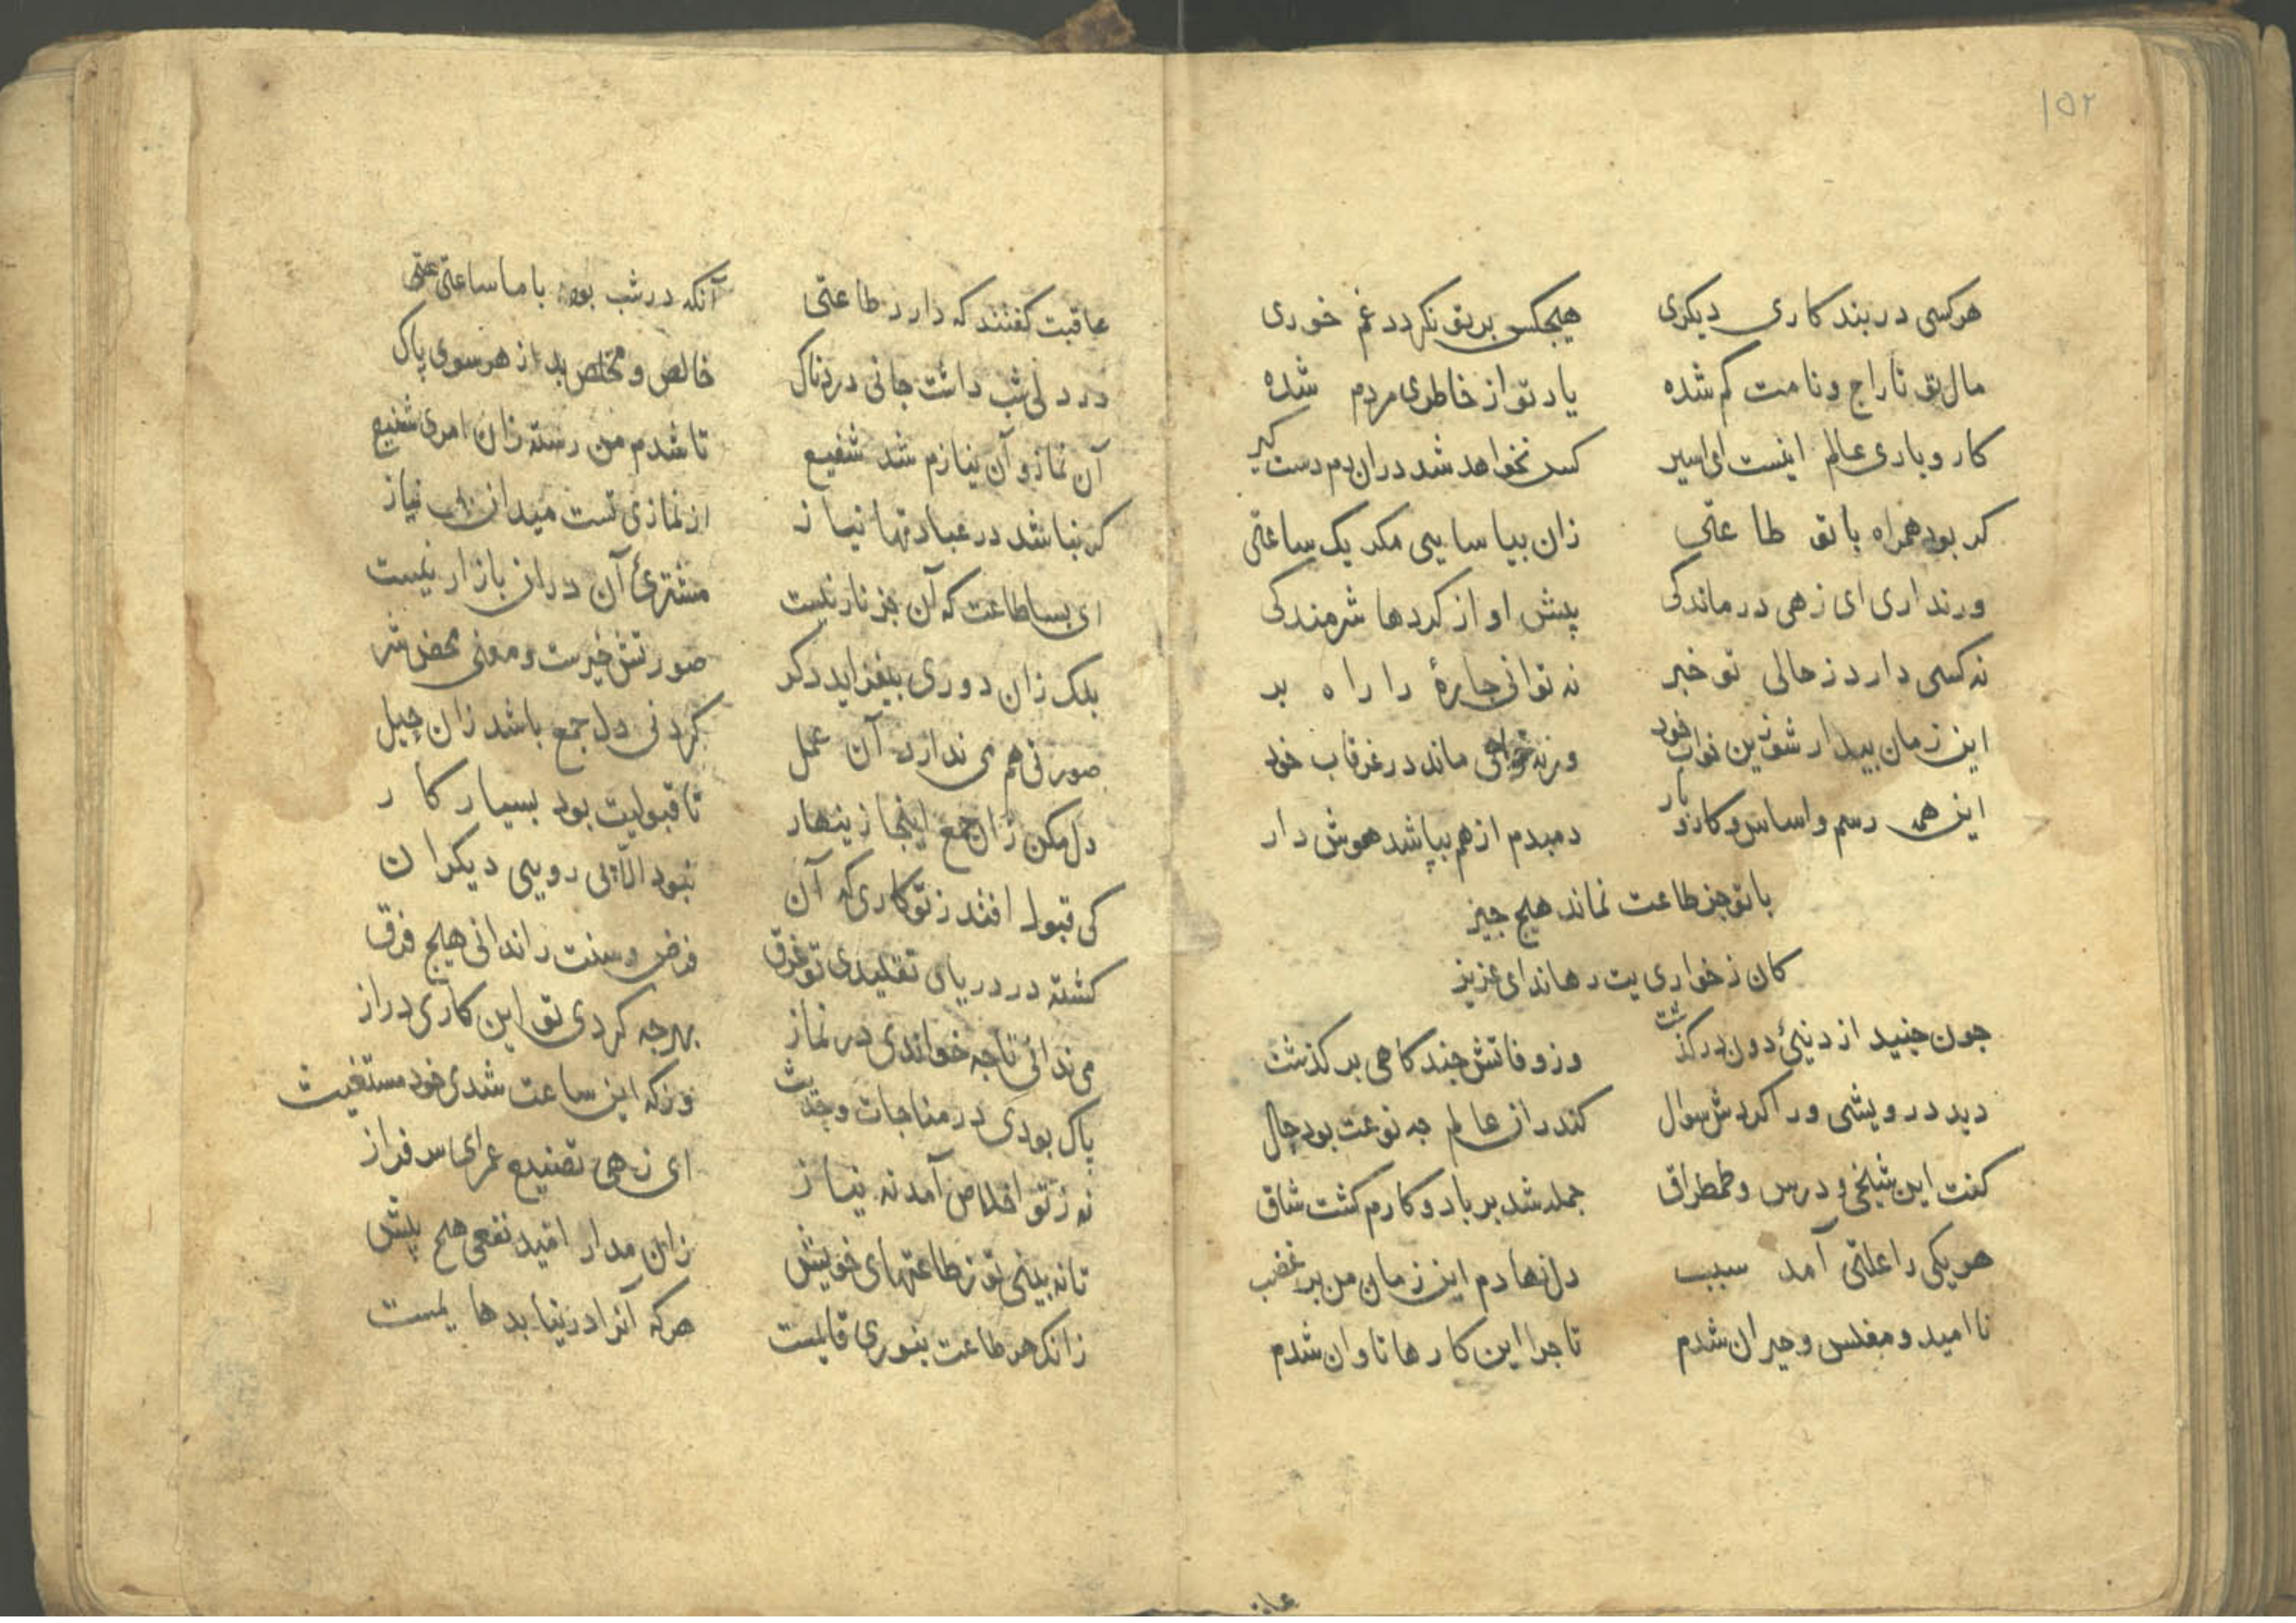 ۱۵۲
هرکسی در بند کاری دیکری هیجکس بر تو نکردد غم خوری
مال تو تاراج و نامت کم شده یاد تو از خاطری مردم شده
کار و باری عالم اینست ای اسیر کس نخواهد شد دران دم دست کیر
کر بود همراه با تو طاعتی زان بیاسایی مکر یک ساعتی
ور نداری ای زهی درماندکی پیش او از کردها شرمندکی
نه کسی دارد ز حالی تو خبر نه توانی جارۀ را راه بر
این زمان بیدار شو زین خواب خود ورنه خواهی ماند در غرقاب خود
این همه رسم و اساس و کار و بار دمبدم از هم بپاشد هوش دار
با تو جز طاعت نماند هیج جیز
کان ز خواری یت رهاند ای عزیز
جون جنید از دنیئ دون درکذشت وز وفاتش جند کاهی برکذشت
دید درویشی ورا کردش سوال کندران عالم جه نوعت بود حال
کفت این شیخی و درس و طمطراق جمله شد بر باد و کارم کشت شاق
هر یکی را علتی آمد سبب دل نهادم این زمان من بر غضب
ناامید و مفلس و حیران شدم تا جرا این کارها تاوان شدم
عاقبت
عاقبت کفتند که دارد طاعتی آنکه در شب بود با ما ساعتی
در دلی شب داشت جانی دردناک خالص و مخلص بد از هر سوی پاک
آن نماز و آن نیازم شد شفیع تا شدم من رسته زان امری شنیع
کر نباشد در عبادتها نیاز از نمازی تست میدان نیاز
ای بسا طاعت که آن جز نار نیست مشترئ آن دران بازار نیست
بلک زان دوری بیفزاید دکر صورتش خیرست و معنی محض شر
صورتی هم می ندارد آن عمل کردنی دل جمع باشد زان حیل
دل مکن زان جمع اینجا زینهار تا قبولیت بود بسیار کار
کی قبول افتد ز تو کاری که آن نبود الا بی رویی دیکران
کشته در دریای تقلیدی تو غرق فرض و سنت را ندانی هیج فرق
می ندانی تا جه خواندی در نماز بهر جه کردی تو این کاری دراز
پاک بودی در مناجات و حدیث ورکه این ساعت شدی خود مستغیث
نه ز تو اخلاص آمد نه نیاز ای زهی تضییع عمر ای سرفراز
تا نه بینی تو ز طاعتهای خویش زان مدار امید نفعی هیج پیش
زانک هر طاعت بنوری قایمست هرکه آنرا در نیابد ها یمست